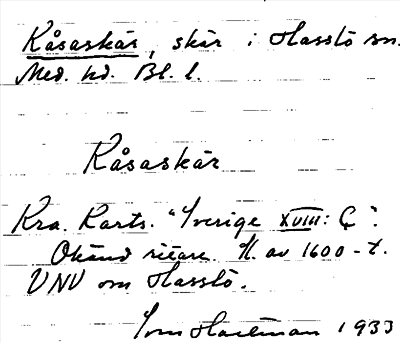 Kåsaskär, skär i Hasslö sn.
Med. hd. Bl. l.
Kåsaskär
Kra. Karts. "Sverige XVIII: Ç".
Okänd ritare. Sl. av 1600-t.
VNV om Hasslö.
Hartman 1933